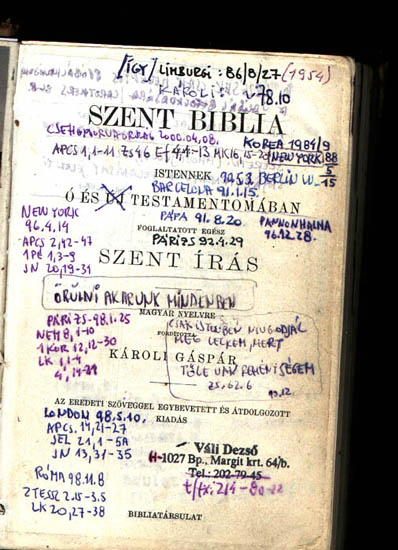 [ÍGY] LIMBURGI: 86/8/27 (1954)
KÁROLI S
78.10
SZENT BIBLIA
CSEHSPORVÁSÁRRA 2000.04.08.
KOREA 1984/9
APCS 1,1-11 ZS 46 Ef 4,4-13 MK 16,15-20 NEW YORK 88
5
ISTENNEK
BERLIN
15
BARCELONA 91.1.15.
Ó ÉS ÚJ TESTAMENTOMÁBAN
NEW YORK
96.4.14
PÁPA 91.8.20.
PANNONHALMA
96.12.28.
FOGLALTATOTT EGÉSZ
PÁRIZS 92.4.29
APCS 2,42-47
1PE 1,3-9
JN 20,19-31
SZENT ÍRÁS
ÖRÜLNI AKARUNK MINDENBEN
MAGYAR NYELVRE
FORDÍTOTTA
PÁRIZS-98.1.25
NEH 8,1-10
1KOR 12,12-30
LK 1,1-4
4,14-21
CSAK ISTENBEN NYUGODJÁL
MEG LELKEM, MERT
TŐLE VAN REMÉNYSÉGEM
ZS. 62.6
KÁROLI GÁSPÁR
AZ EREDETI SZÖVEGGEL EGYBEVETETT ÉS ÁTDOLGOZOTT
KIADÁS
LONDON 98.5.10.
APCS. 14,21-27
JEL 21,1-5A
JN 13,31-35
Váli Dezső
H-1027 Bp., Margit krt. 64/b.
Tel.: 202-79-45
t/fx: 214-
RÓMA 98.11.8
2TESSZ 2.15-3.5
LK 20,27-38
BIBLIATÁRSULAT